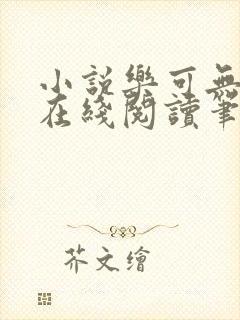 小説樂可無
在綫閱讀筆
芥文繪